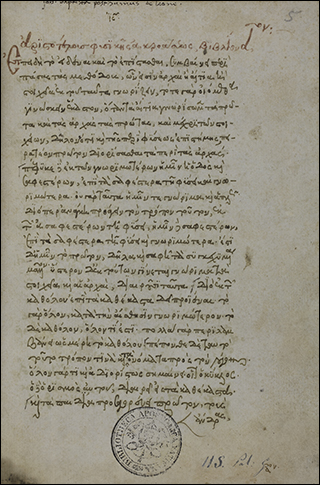 ἀριστοτέλους φυσικῆς ἀκροάσεως βιβλίον α
Ἐπειδὴ τὸ εἰδέναι καὶ τὸ ἐπίστασθαι, συμβαίνει περὶ
πάσας τὰς μεθόδους, ὧν εἰσὶν ἀρχαὶ ἢ αἴτια ἢ
στοιχεῖα, ἐκ τοῦ ταῦτα γνωρίζειν, τότε γὰρ οἰόμεθα
γινώσκειν ἕκαστον, ὅταν τὰ αἴτια γνωρίσωμεν τὰ πρῶ
τα καὶ τὰς ἀρχὰς τὰς πρώτας, καὶ μέχρι τῶν στοι
χείων, δῆλον ὅτι καὶ τῆς περὶ φύσεως ἐπιστήμης πει
ρατέον πρῶτον διορίσασθαι τὰ περὶ τὰς ἀρχάς.
πέφυκε δὲ ἐκ τῶν γνωριμωτέρων ἡμῖν ἡ ὁδὸς καὶ
σαφεστέρων, ἐπὶ τὰ σαφέστερα τῇ φύσει καὶ γνω
ριμώτερα. οὐ γὰρ ταὐτὰ ἡμῖν τε γνώριμα καὶ ἁπλῶς
διόπερ ἀνάγκη προάγειν τὸν τρόπον τοῦτον, ἐκ
τῶν ἀσαφεστέρων μὲν τῇ φύσει, ἡμῖν δὲ σαφεστέρων
ἐπὶ τὰ σαφέστερα τῇ φύσει καὶ γνωριμώτερα. ἔστι
δ' ἡμῖν τὸ πρῶτον, δῆλα καὶ σαφῆ τὰ συγκεχυμένα
μᾶλλον. ὕστερον δ' ἐκ τούτων γίνεται γνώριμα τὰ
στοιχεῖα καὶ αἱ ἀρχαὶ, διαιροῦσι ταῦτα. διὸ ἐκ τῶν
καθόλου ἐπὶ τὰ καθέκαστα δεῖ προϊέναι. τὸ
γὰρ ὅλον, κατὰ τὴν αἴσθησιν γνωριμώτερον. τὸ
δὲ καθόλου, ὅλον τί ἐστι. πολλὰ γὰρ περιλαμ
βάνει ὡς μέρη τὸ καθόλου. πέπονθε δὲ ταυτὸ
τοῦτο τρόπον τινὰ καὶ τὰ ὀνόματα πρὸς τὸν λόγον.
ὅλον γάρ τι καὶ ἀδιορίστως σημαίνει οἷον ὁ κύκλος
ὁ δὲ ὁρισμὸς αὐτοῦ, διαιρεῖ εἰς τὰ καθέκαστα.
καὶ τὰ παιδία προσαγορεύει πρῶτον,
ἄνδρας